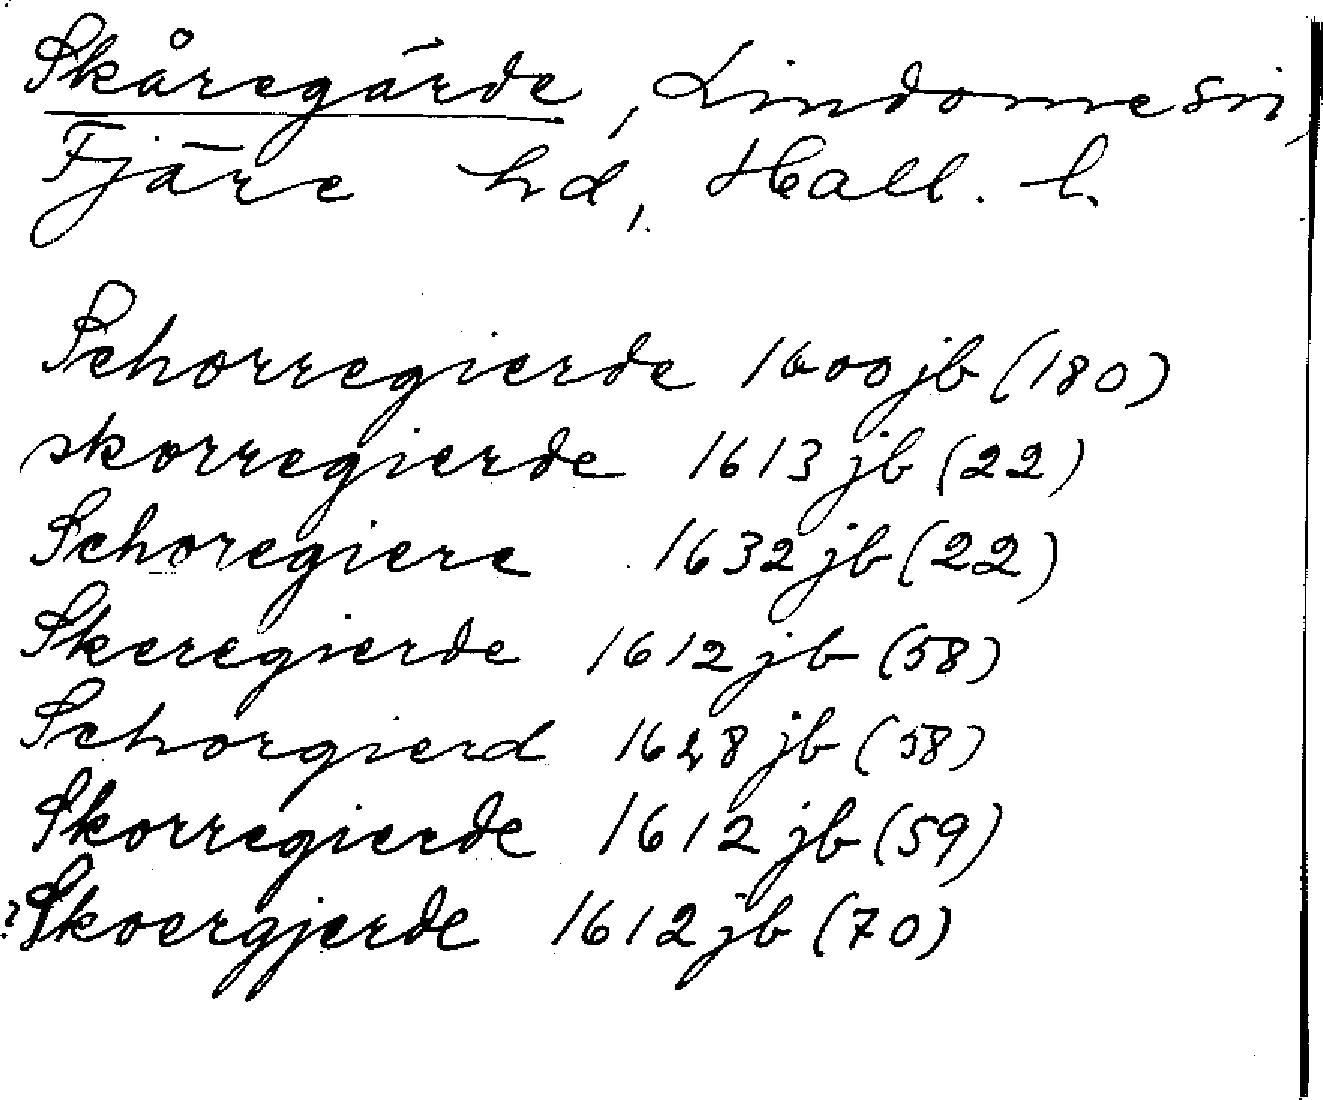 Skåregärde, Lindome sn,
Fjäre hd, Hall. l.
Schorregierde 1600 jb (180)
skorregierde 1613 jb (22)
Schoregiere 1632 jb (22)
Skeregierde 1612 jb (58)
Schorgierd 1628 jb (58)
Skorregierde 1612 jb (59)
? Skoergjerde 1612 jb (70)